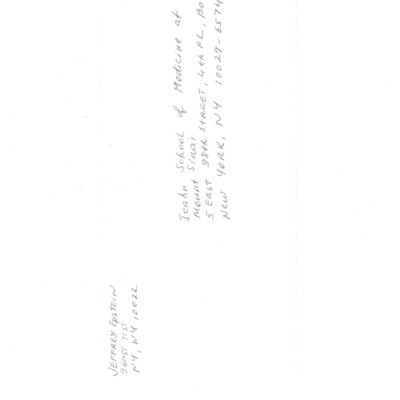 JEFFREY EPSTEIN
9 EAST 71ST
NY, NY 10022
Icahn School of Medicine at
Mount Sinai
5 EAST 98th STREET, 4th FL, Bo
New YORK, NY 10029-6574